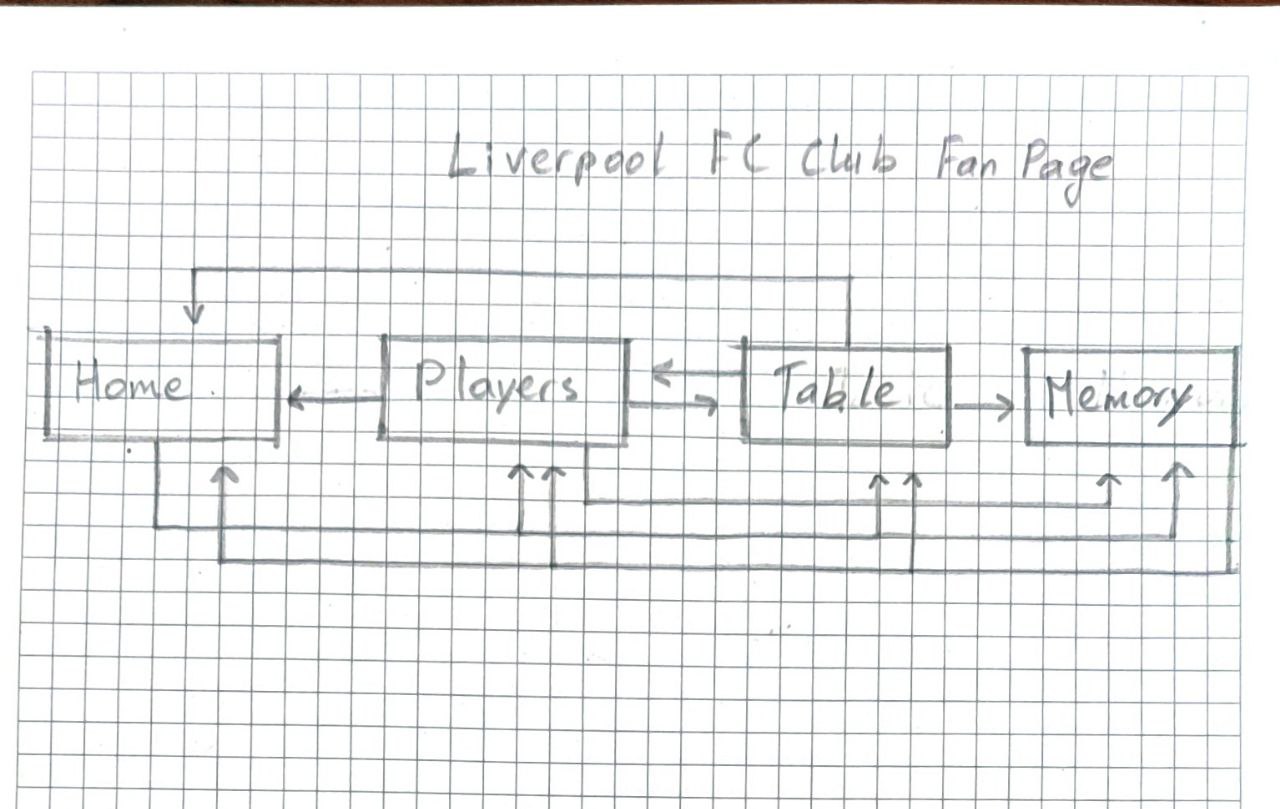 Liverpool FC Club Fan Page
Home
Players
Table
Memory